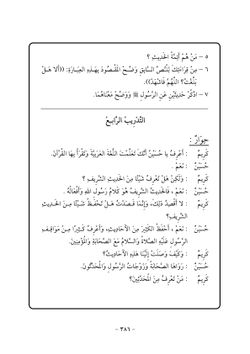 ٥ - مَنْ هُمْ أَئِمَّةُ الْحَدِيثِ ؟
٦ - مِنْ قِرَاءَتِكَ لِلنَّصِّ السَّابِقِ وَضِّحِ الْمَقْصُودَ بِهَذِهِ الْعِبَارَةِ: ((أَلَا هَلْ
بَلَّغْتُ؟ اللَّهُمَّ فَاشْهَدْ)).
٧ - اذْكُرْ حَدِيثَيْنِ عَنِ الرَّسُولِ ﷺ وَوَضِّحْ مَعْنَاهُمَا.
التَّدْرِيبُ الرَّابِعُ
حِوَارٌ :
كَرِيمٌ : أَعْرِفُ يَا حُسَيْنُ أَنَّكَ تَعَلَّمْتَ اللُّغَةَ الْعَرَبِيَّةَ وَتَقْرَأُ بِهَا الْقُرْآنَ.
حُسَيْنٌ : نَعَمْ.
كَرِيمٌ : وَلَكِنْ هَلْ تَعْرِفُ شَيْئًا مِنَ الْحَدِيثِ الشَّرِيفِ ؟
حُسَيْنٌ : نَعَمْ ، فَالْحَدِيثُ الشَّرِيفُ هُوَ كَلَامُ رَسُولِ اللهِ وَأَفْعَالُهُ .
كَرِيمٌ : لَا أَقْصِدُ ذَلِكَ، وَإِنَّمَا قَصَدْتُ هَلْ تَحْفَظُ شَيْئًا مِنَ الْحَدِيثِ
الشَّرِيفِ؟
حُسَيْنٌ : نَعَمْ ، أَحْفَظُ الْكَثِيرَ مِنَ الْأَحَادِيثِ، وَأَعْرِفُ كَثِيرًا مِنْ مَوَاقِفِ
الرَّسُولِ عَلَيْهِ الصَّلَاةُ وَالسَّلَامُ مَعَ الصَّحَابَةِ وَالْمُؤْمِنِينَ.
كَرِيمٌ : وَكَيْفَ وَصَلَتْ إِلَيْنَا هَذِهِ الْأَحَادِيثُ؟
حُسَيْنٌ : رَوَاهَا الصَّحَابَةُ وَزَوْجَاتُ الرَّسُولِ وَالْمُحَدِّثُونَ.
كَرِيمٌ : مَنْ تَعْرِفُ مِنَ الْمُحَدِّثِينَ؟
- ٣٨٦ -